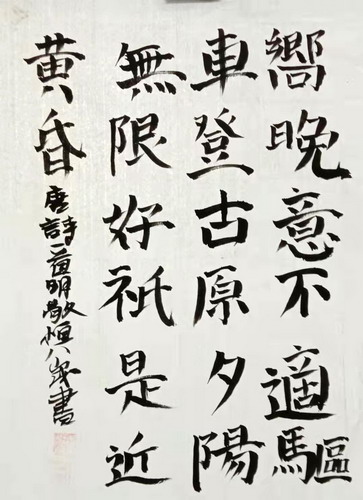 嚮晚意不適驅
車登古原夕陽
無限好祇是近
黃昏唐詩一首明敬恒八歲書